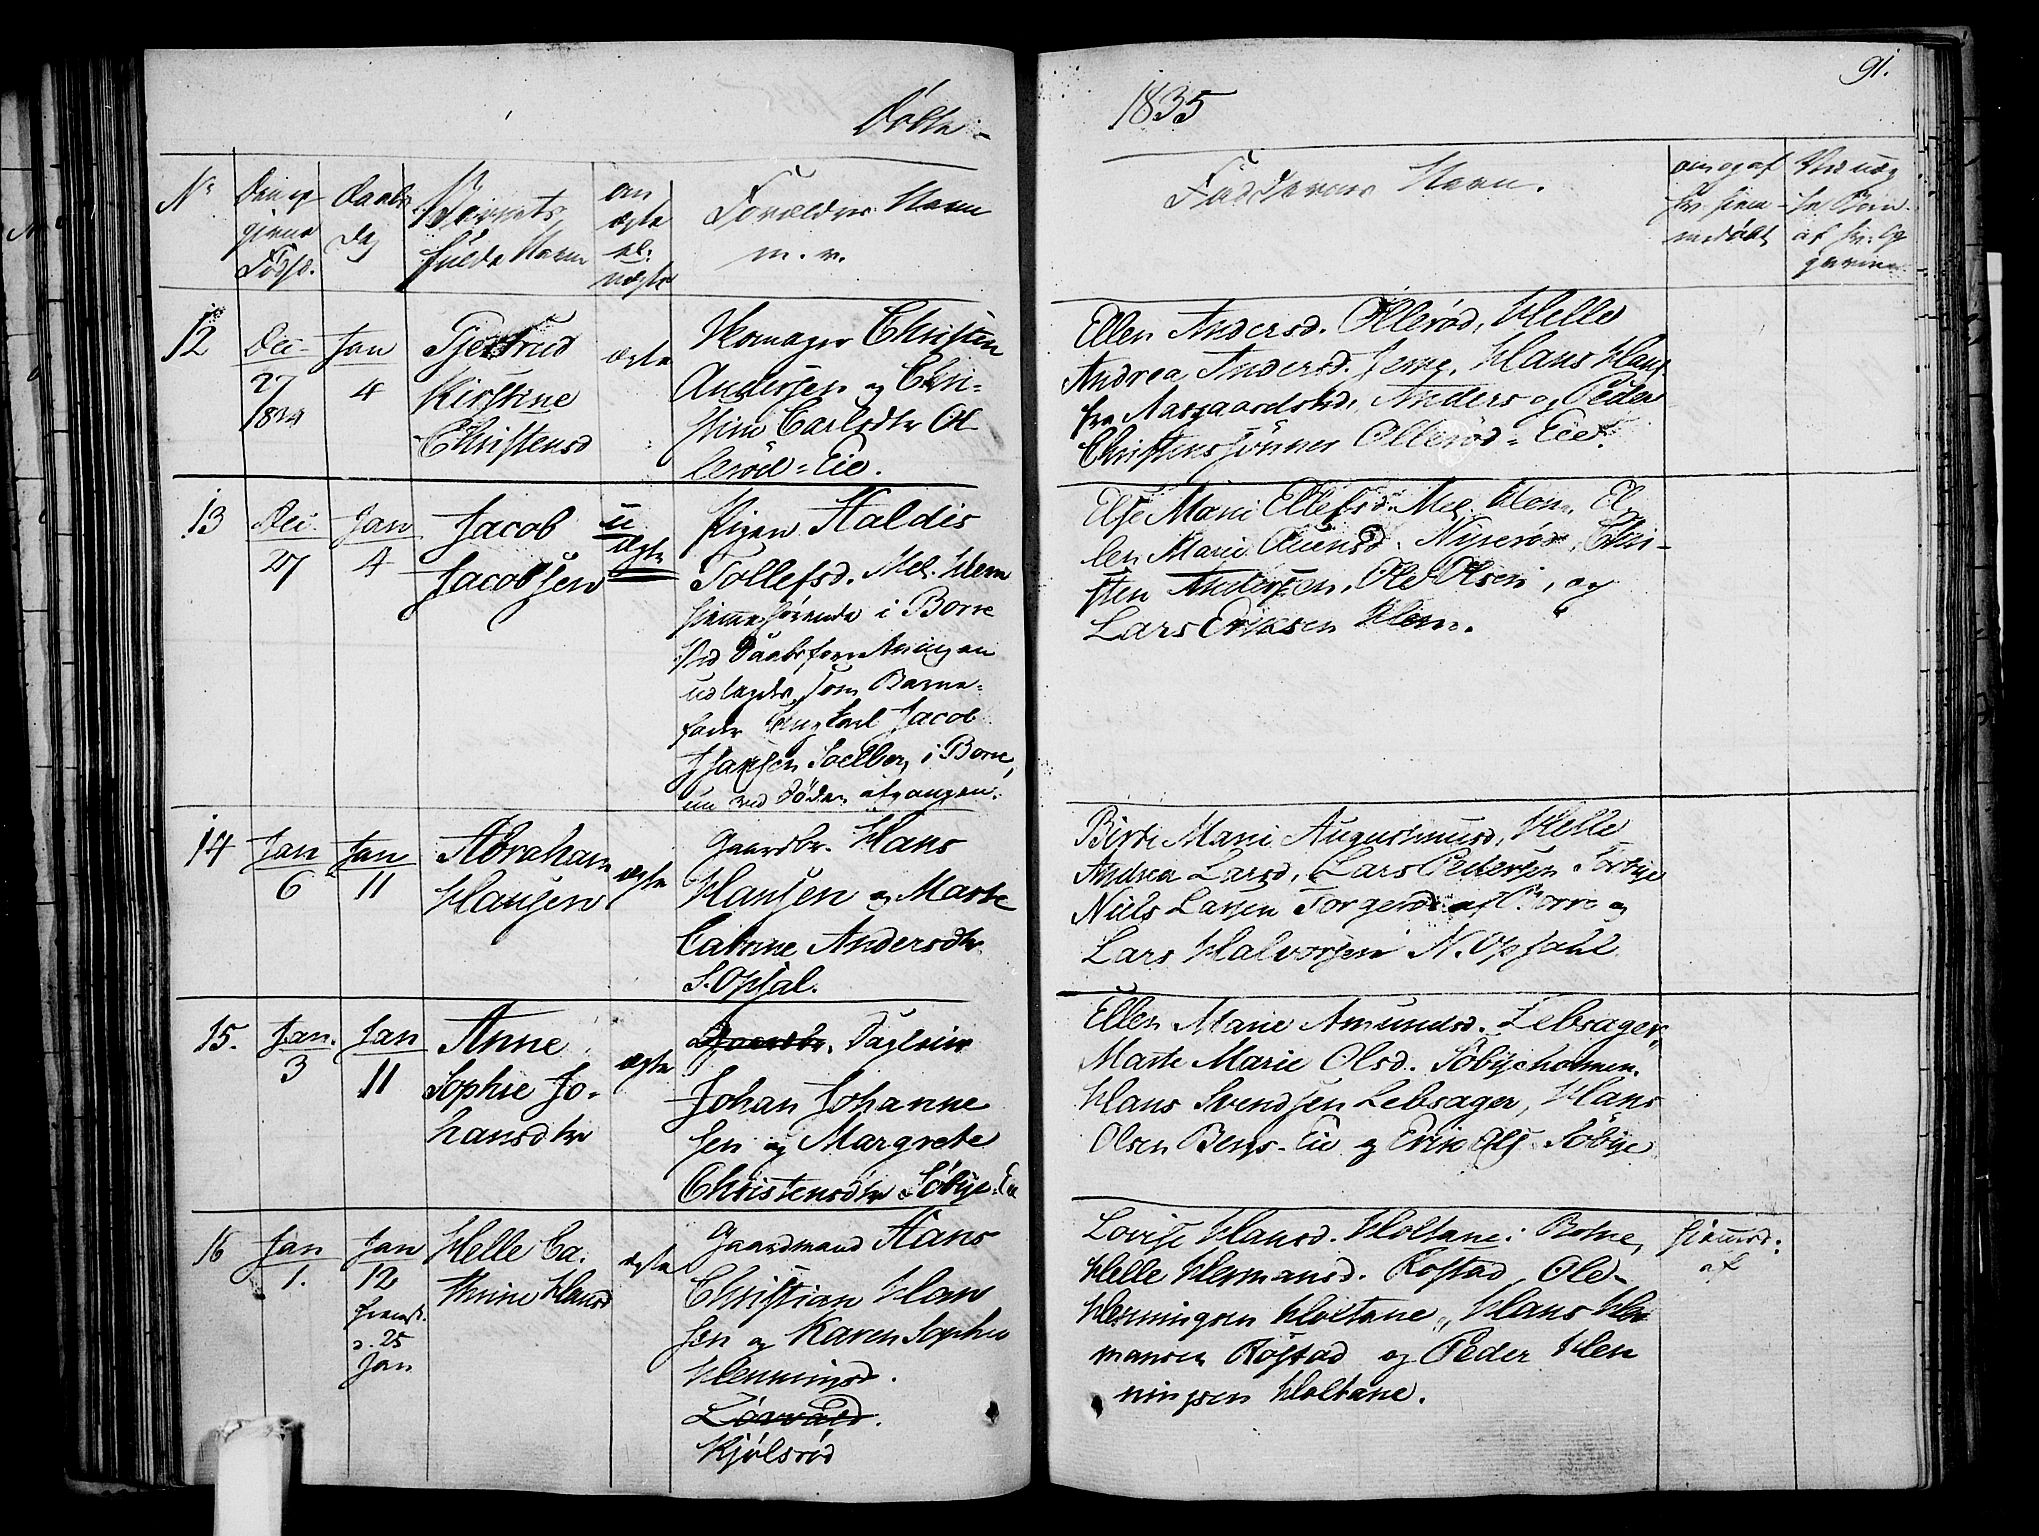 Døbte
1835
91.
No
Den og
gjens
Fødsl.
Daabs
Dag
Barnets
fulde Navn
om
ægte
el.
uægte
Forældres Navn
m. v.
Faddernes Navn.
om og af
hjem-
medøbt
12
Dec
27
1834
Jan
4
Gjertrud
Kirstine
Christensd
ægte
Skomager Christen
Andersen og Chri-
stine Carlsdtr Ol
lerød-Eie.
Ellen Andersd. Ollerød, Helle
Andrea Andersd. Hans Hans
fra Aasgaardstrd, Anders og Peder
Christens sønner Ollerød-Eie.
13
Dec.
27
Jan
4
Jacob
Jacobsen
u
ægte
Pigen Haldis
Tollefsd. Mel. Hem
hjemmehørende i Borre
Ved Daabsforretningen
udlagdes som Barne-
fader Ungkarl Jacob
Hansen Soelberg i Borre,
nu ved Døden afgangen.
Else Marie Ellefsd. Mel. Hem. El
len Marie Nyrerød, Chri-
sten Andersen, Ole Olsen, og
Lars Eriksen Hem.
14
Jan
6
Jan
11
Abraham
Hansen
ægte
Gaardbr. Hans
Hansen og Marte
Catrine Andersdtr
S. Opsal.
Marie Augustinusd, Helle
Andrea Larsd, Lars Pedersen
Niels Larsen Torgersrød af Borre og
Lars Halvorsen N. Opsahl
15.
Jan.
3
Jan
11
Anne
Sophie Jo-
hansdtr
ægte
Gaardbr. Dagleier
Johan Johanne
sen og Margrete
Christensdtr Søbye-Eie
Ellen Marie Amundsd. Lebsager,
Marte Marie Olsd. Søbyeholmen.
Hans Svendsen Lebsager, Hans
Olsen Bergs-Eie og Erik Ols Søbye
16
Jan
1.
Jan
12
fremst.
d. 25
Jan
Helle Ca-
thrine Hansd
ægte
Gaardmand Hans
Christian Han
sen og Karen Sophie
Henningsd.
Kjølsrød
Lovise Hansd. Holtane i Botne,
Helle Hermansd. Rostad, Ole
Henningsen Holtane, Hans Her
mansen Rostad og Peder Hen
ningsen Holtane.
hjemd:
af